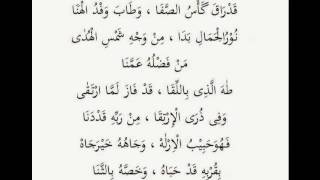 قَدْرَاقَ كَأْسُ الصَّفَا ، وَطَابَ وَفْدُ الْهَنَا
نُوْرُالْجَمَالِ بَدَا ، مِنْ وَجْهِ شَمْسِ الْهُدٰى
مَنْ فَضْلُهُ عَمَّنَا
طٰهَ الَّذِى بِاللِّقَا ، قَدْ فَازَ لَمَّا ارْتَقٰى
وَفِى ذُرَى الْإِرْتِقَا ، مِنْ رَبِّهِ قَدْدَنَا
فَهُوَحَبِيْبُ الْإِلٰهْ ، وَجَاهُهُ خَيْرُجَاهْ
بِقُرْبِهِ قَدْ حَبَاهُ ، وَخَصَّهُ بِالثَّنَا